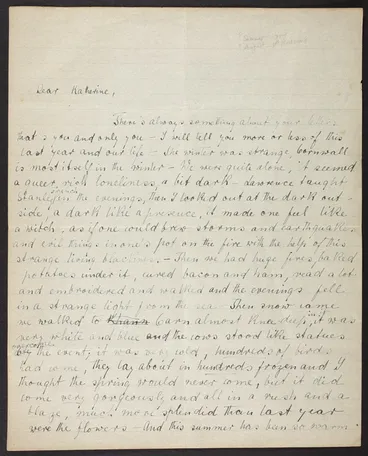 Dear Katherine,
There's always something about your letters
that's you and only you – I will tell you more or less of this
last year and our life – The winter was strange, Cornwall
is most itself in the winter – We were quite alone, it seemed
a queer, rich loneliness, a bit dark – Lawrence taught
Stanley french
in the evenings, than I looked out at the dark out
side, a dark like a presence, it made one feel like
a witch, as if one could brew storms and earthquakes
and evil things in one's pot on the fire with the help of this
strange living blackness. – Then we had huge fires, baked
potatoes under it, cured bacon and ham, read a lot
and embroidered and walked and the evenings fell
in a strange light from the sea – Then snow came
we walked to Zennor almost knee deep, it was
very white and blue and the cows stood like statues
the county it was very cold, hundreds of birds
had come, they lay about in hundreds frozen and I
thought the spring would never come, but it did
come very gorgeously and all in a rush and a
blaze, much more splendid than last year
were the flowers – And this summer has been so warm